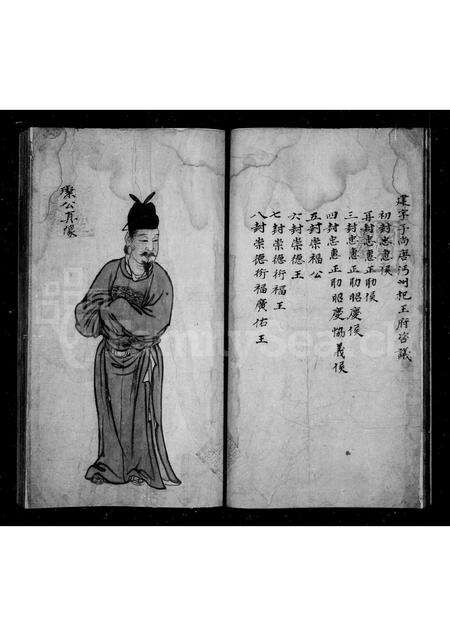 建字子尚唐沔州把王府咨議
初封忠惠侯
再封忠惠正助侯
三封忠惠正助昭慶侯
四封忠惠正助昭慶協義侯
五封崇福公
六封崇德王
七封崇德衍福王
八封崇德衍福廣佑王
璨公真像